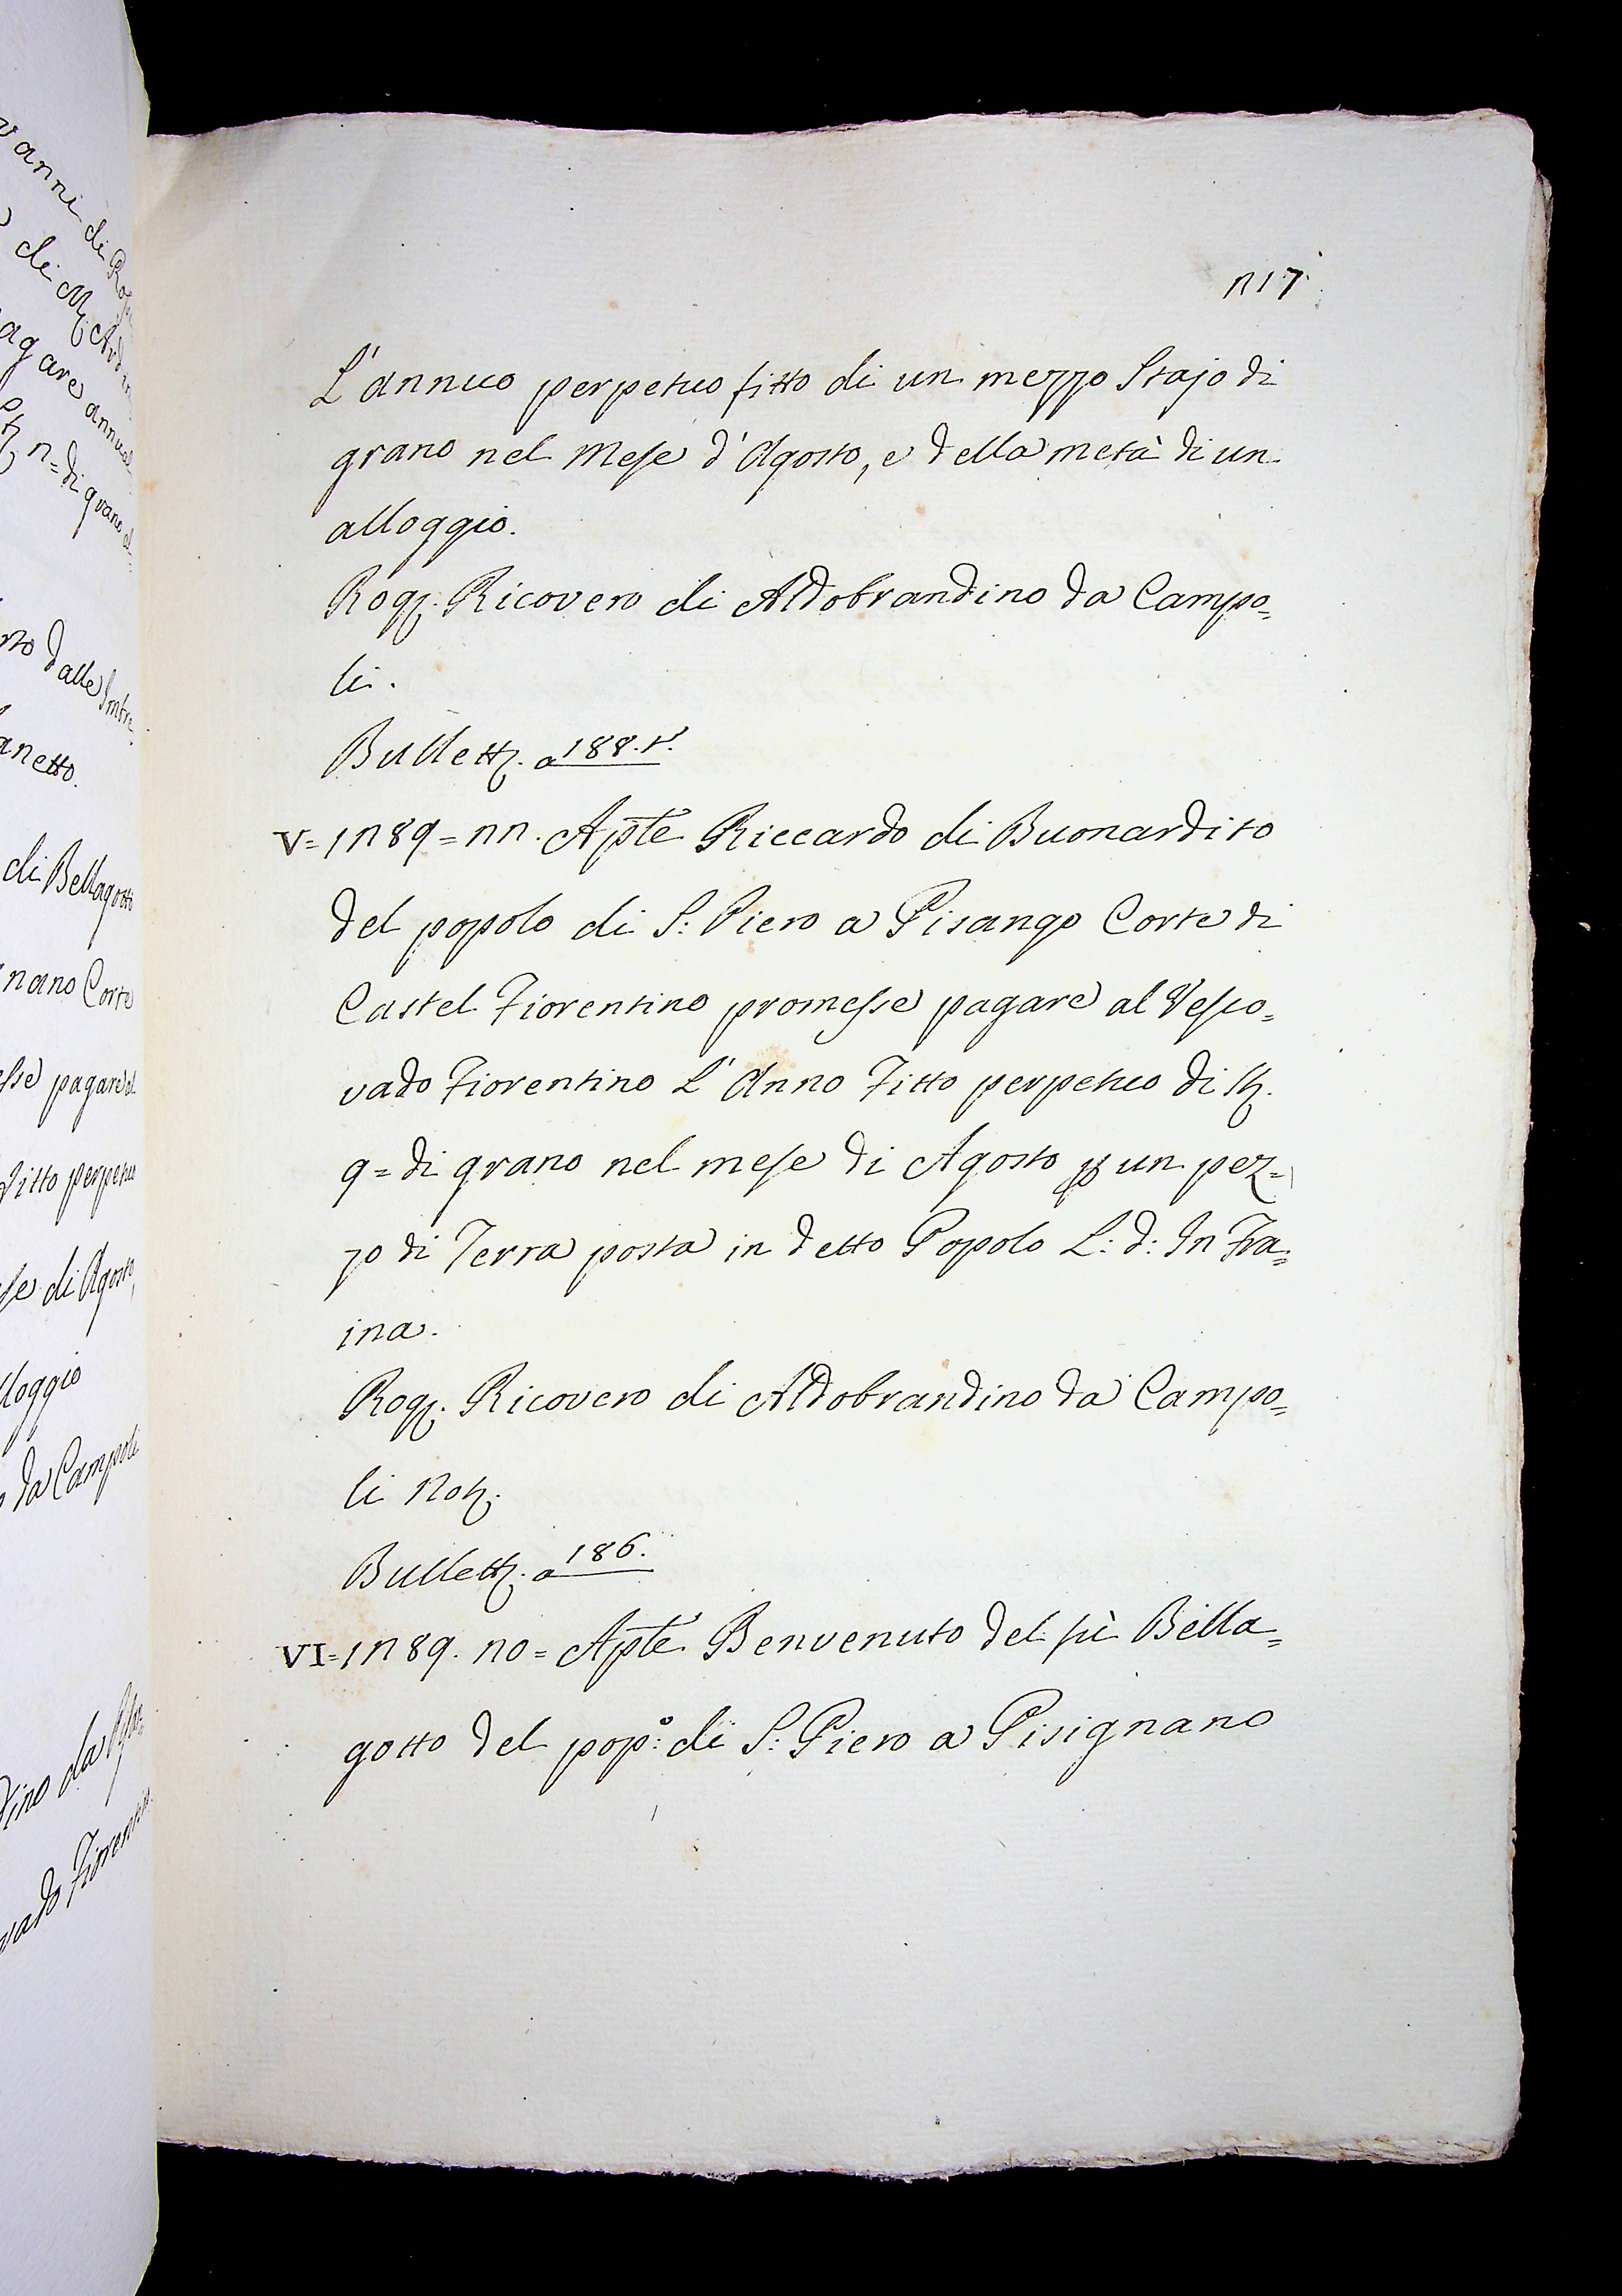 di
di M.
n= di grano
dalle
anetto.
di Bellagotto
nano Corte
pagare al
Fitto perpetuo
di Agosto,
da Campoli
217
L'annuo perpetuo fitto di un mezzo Stajo di
grano nel Mese d'Agosto, e della metà di un
alloggio.
Rog. Ricovero di Aldobrandino da Campo=
li.
Bullett. a 188. r.
V= 1289=22. Apte Riccardo di Buonardito
del popolo di S: Piero a Pisango Corte di
Castel Fiorentino promesse pagare al Vesco=
vado Fiorentino L'Anno Fitto perpetuo di St.
9= di grano nel mese di Agosto p un pez=
zo di Terra posta in detto Popolo L: d: In Fra=
ina.
Rog. Ricovero di Aldobrandino da Campo=
li Not.
Bullett. a 186.
VI= 1289. 20= Apte Benvenuto del fù Bella=
gotto del pop:º di S: Piero a Pisignano